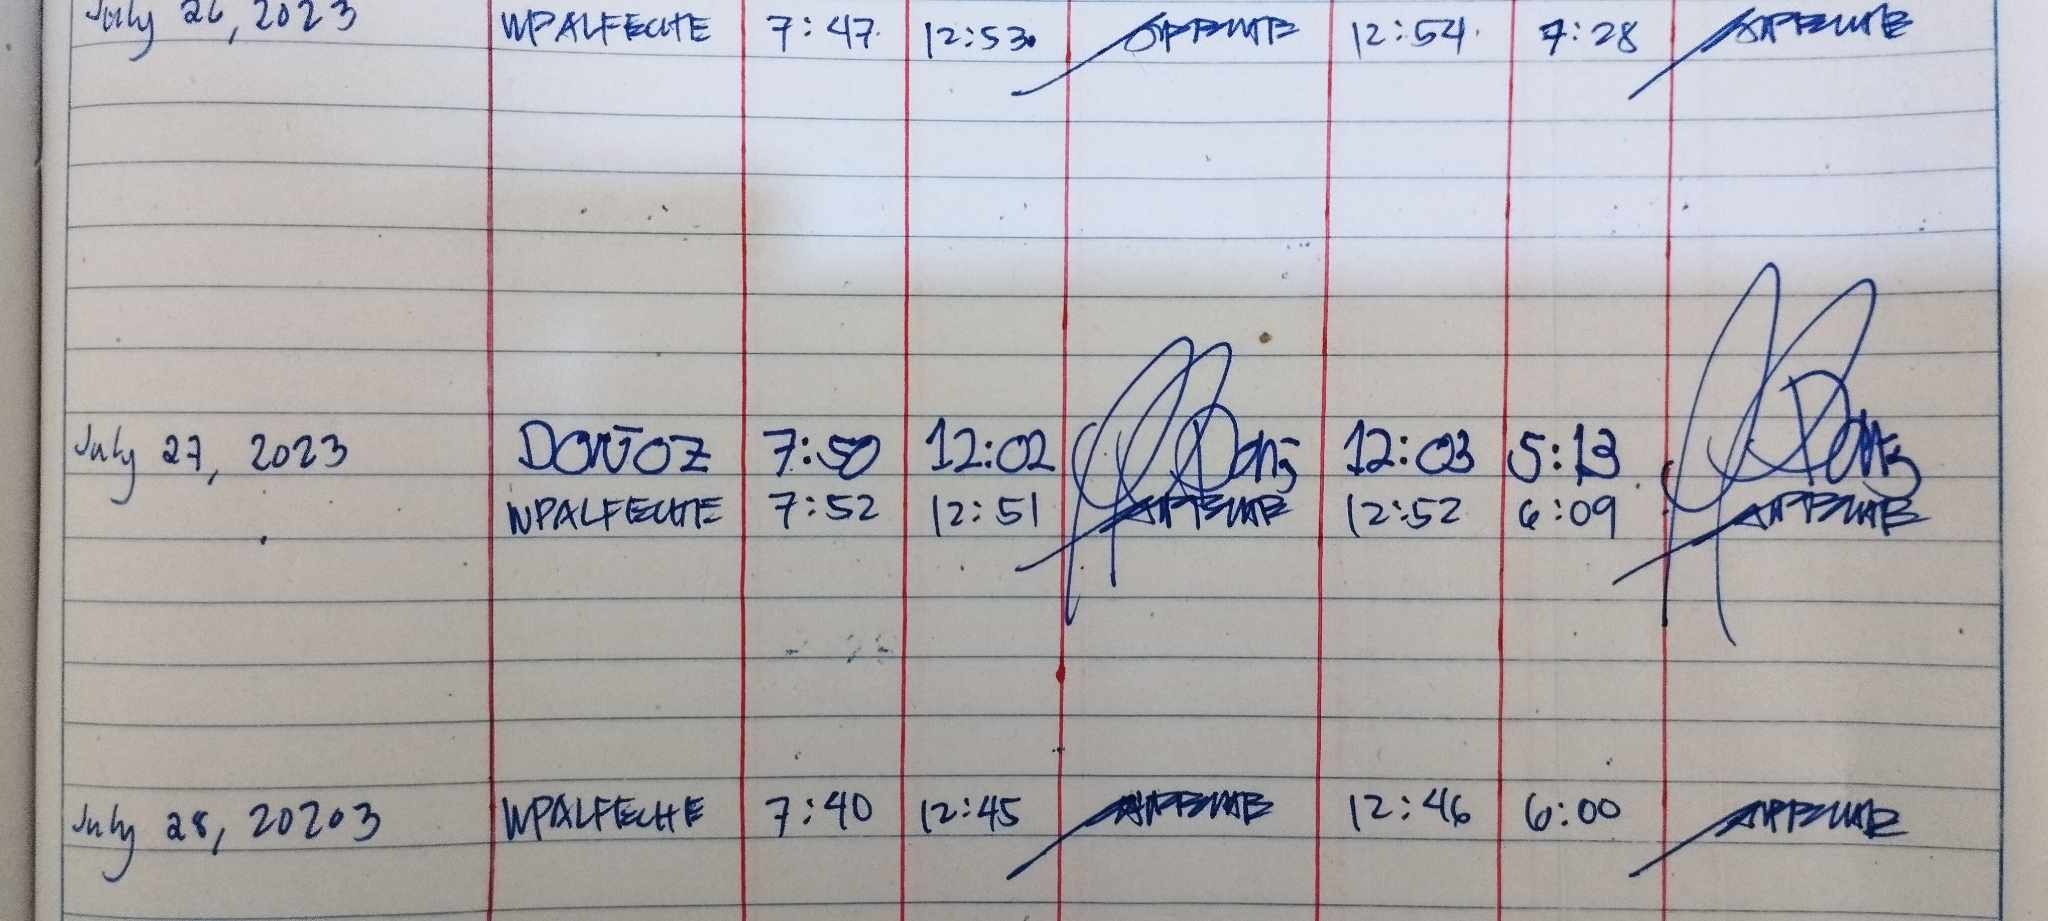 July 26, 2023 WPALFECHE 7:47 12:53 12:54 7:28
July 27, 2023 DOÑOZ 7:50 12:02 12:03 5:13
WPALFECHE 7:52 12:51 12:52 6:09
July 28, 20203 WPALFECHE 7:40 12:45 12:46 6:00